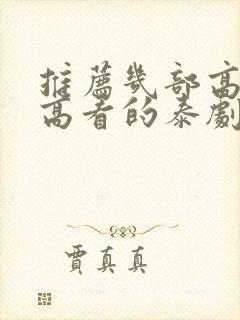 推薦幾部高
高看的泰劇
賈真真